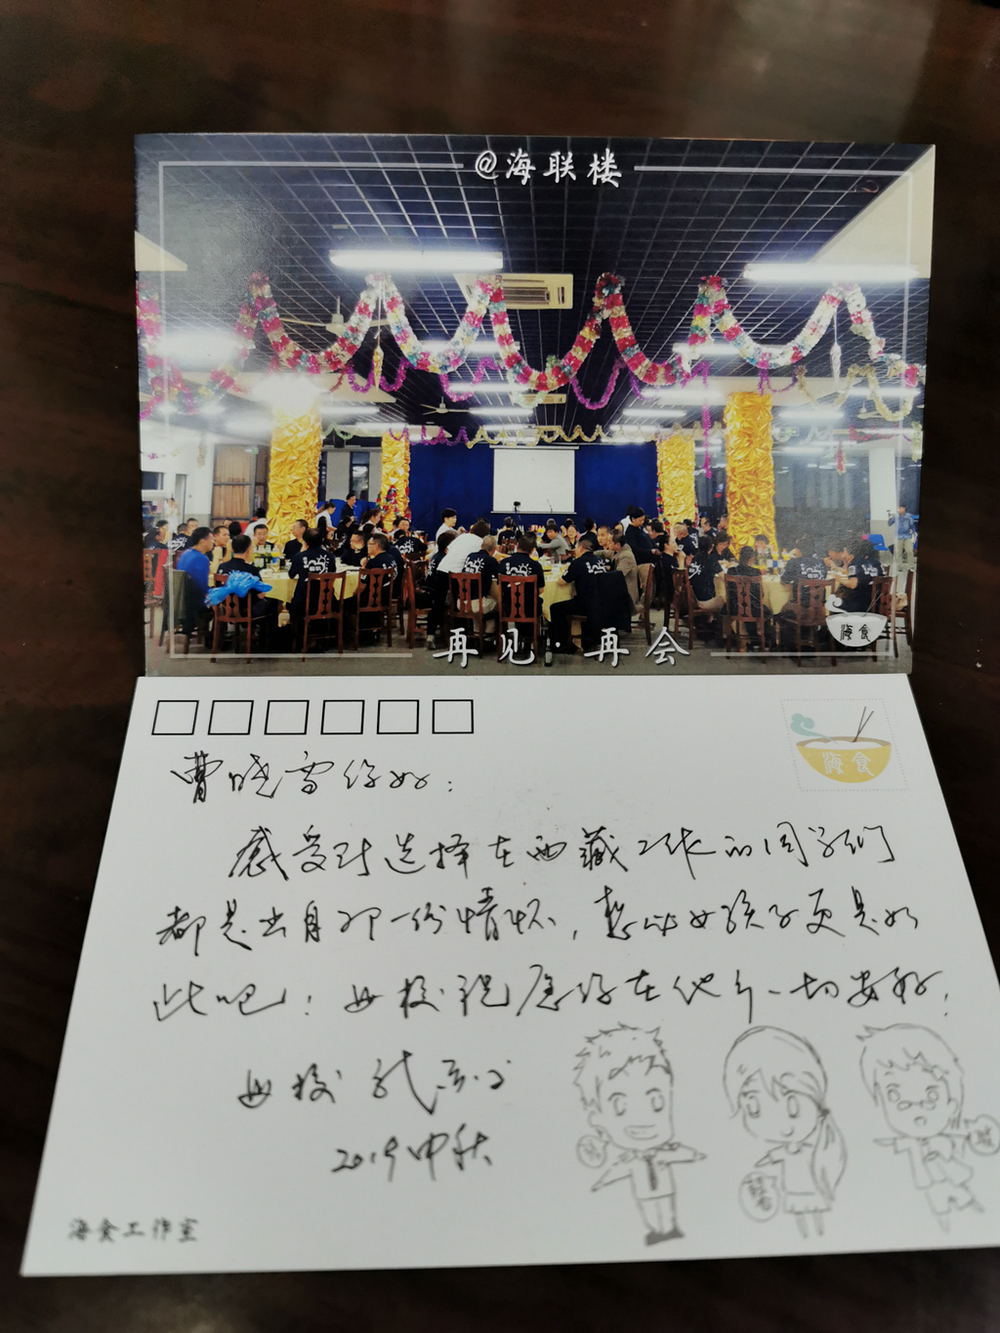 @海联楼
海食
再见·再会
海食
曹晓雪你好：
感受到选择在西藏工作的同学们
都是出自于一份情怀，想必女孩子更是如
此吧！母校祝愿你在他乡一切安好，
母校
2019中秋
海食工作室